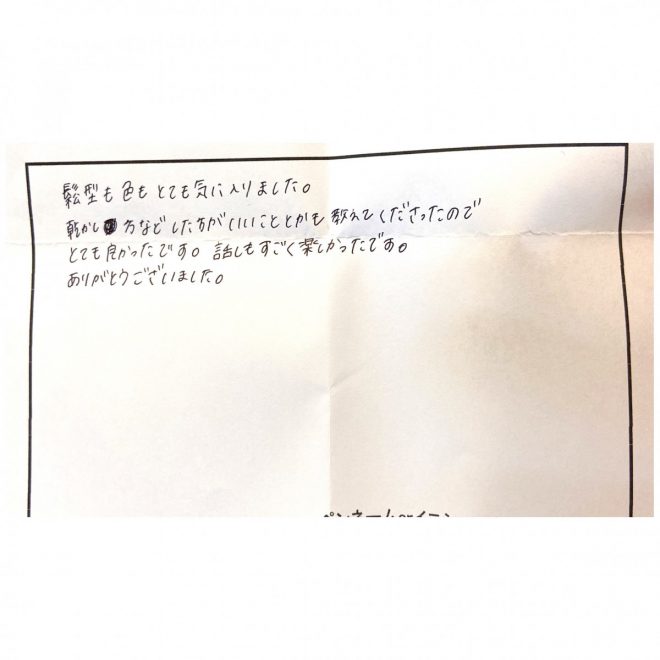 髪型も色もとても気に入りました。
乾かし方などした方がいいこととかも教えてくださったので
とても良かったです。話しもすごく楽しかったです。
ありがとうございました。
ペンネームorイニシ